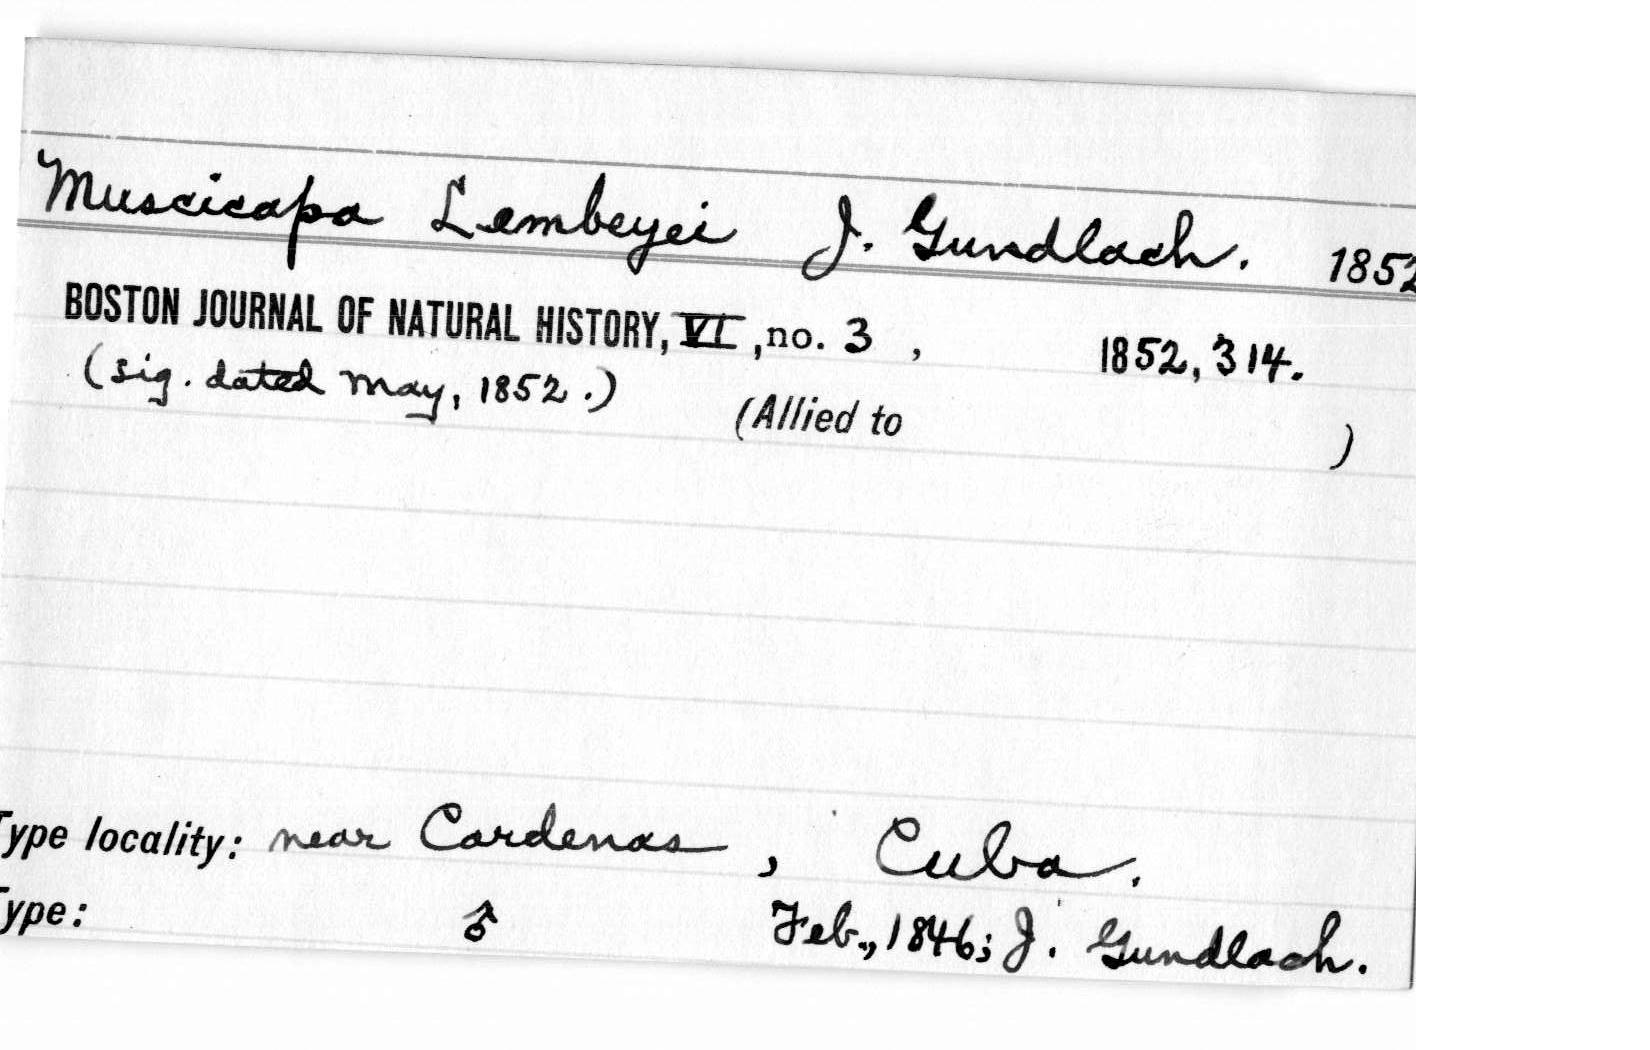 Muscicapa Lembeyei J. Gundlach. 1852
BOSTON JOURNAL OF NATURAL HISTORY, VI, no. 3, 1852, 314.
(Sig. dated May, 1852.)
(Allied to )
Type locality: near Cardenas, Cuba.
Type: ♂ Feb., 1846; J. Gundlach.